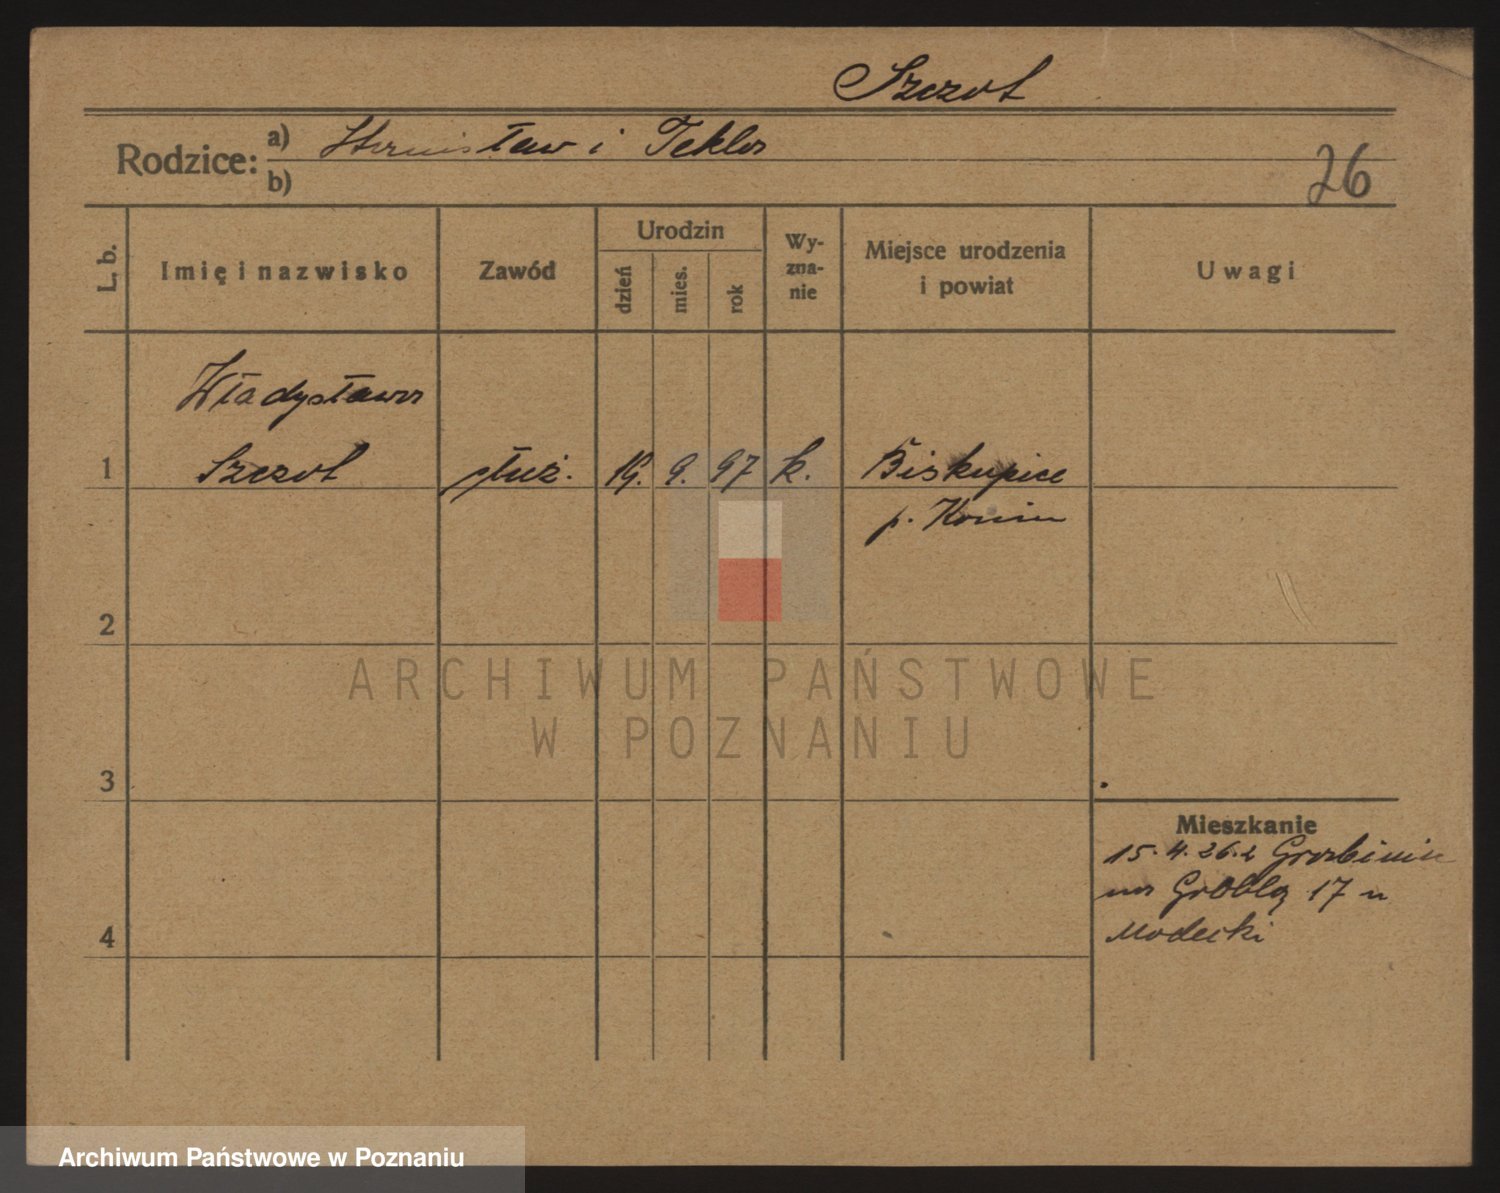 Szczot
Rodzice: a) Stanisław i Tekla
b)
26
L. b.
Imię i nazwisko
Zawód
Urodzin
dzień
mies.
rok
Wy-
zna-
nie
Miejsce urodzenia
i powiat
Uwagi
Władysława
1 Szczot służ. 19. 9. 97 k. Biskupice
p. Konin
2
3
4
Mieszkanie
15. 4. 26. z
na Groblą 17 u
Modecki
ARCHIWUM PAŃSTWOWE
W POZNANIU
Archiwum Państwowe w Poznaniu